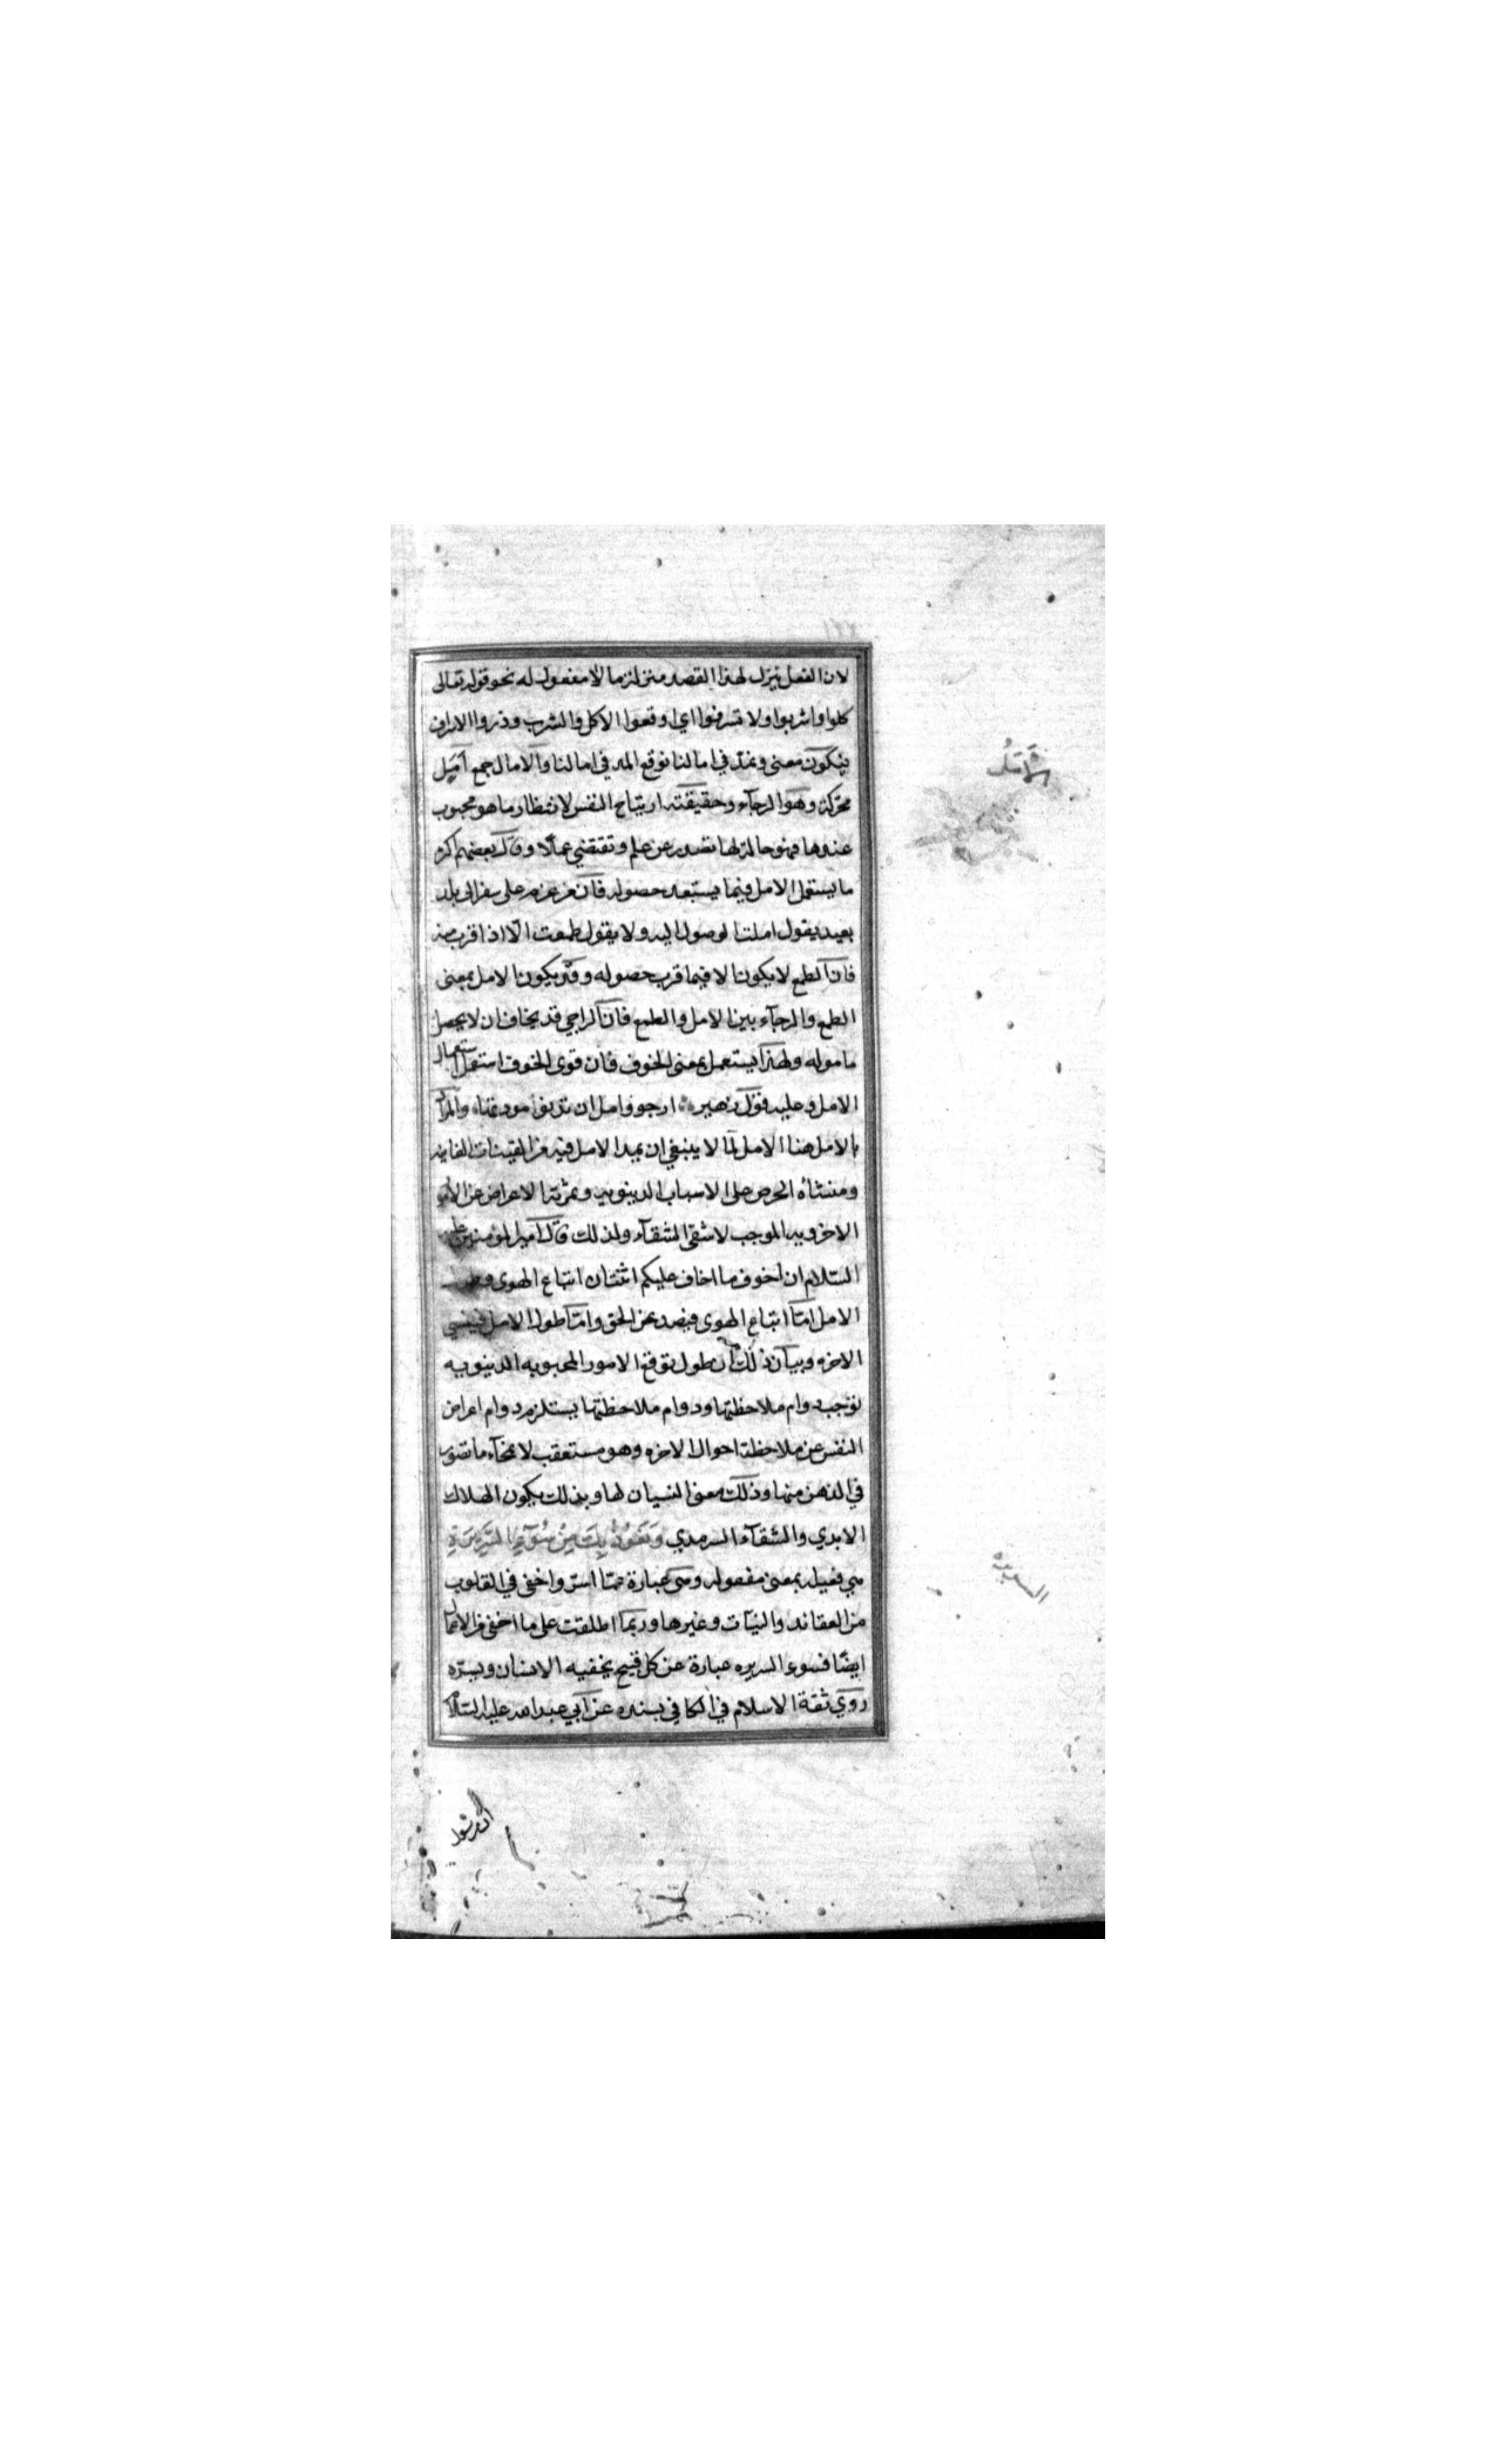 لان الفعل ينزل لهذا القصد منزلة ما لا مفعول له نحو قوله تعالى
كلوا واشربوا ولا تسرفوا اي اوقعوا الاكل والشرب وذروا الاسراف
فيكون معنى ونمد في امالنا نوقع المد في امالنا والامال جمع امل
محركة وهو الرجآء وحقيقته ارتياح النفس لانتظار ما هو محبوب
عندها فهو حالة لها تصدر عن علم وتقتضي عملا وقال بعضهم اكثر
ما يستعمل الامل فيما يستبعد حصوله فان من عزم على سفر الى بلد
بعيد يقول املت الوصول اليه ولا يقول طمعت الّا اذا قرب منه
فان الطمع لا يكون الا فيما قرب حصوله وقد يكون الامل بمعنى
الطمع والرجآء بين الامل والطمع فان الراجي قد يخاف ان لا يحصل
ماموله ولهذا يستعمل بمعنى الخوف فان قوى الخوف استعمل استعمال
الامل وعليه قول زهير ارجو وامل ان تدنو مودتها والمراد
بالامل هنا الامل لما لا ينبغي ان يمد الامل فيه من القينات الفانيه
ومنشاه الحرص على الاسباب الدينويه وثمرته الاعراض عن الامور
الاخرويه الموجب لاشقى الشقآء ولذلك قال امير المؤمنين عليه
السّلام ان اخوف ما اخاف عليكم اثنتان اتباع الهوى وطول
الامل امّا اتباع الهوى فيصد عن الحق وامّا طول الامل فينسي
الاخره وبيان ذلك ان طول توقع الامور المحبوبه الدينويه
توجب دوام ملاحظتها ودوام ملاحظتها يستلزم دوام اعراض
النفس عن ملاحظة احوال الاخره وهو مستعقب لانمحآء ما تصور
في الذهن منها وذلك معنى النسيان لها وبذلك يكون الهلاك
الابدي والشقآء السرمدي وَنَعُوذُ بِكَ مِنْ سُوٓءِ السَّرِيرَةِ
هي فعيله بمعنى مفعوله وهى عبارة عمّا اسرّ واخفى في القلوب
من العقائد والنيّات وغيرها وربما اطلقت على ما اخفى من الاعمال
ايضًا فسوء السريره عبارة عن كل قبيح يخفيه الانسان ويسرّه
روى ثقة الاسلام في الكافي بسنده عن ابي عبد الله عليه السّلام
الْاَمَلُ
السريره